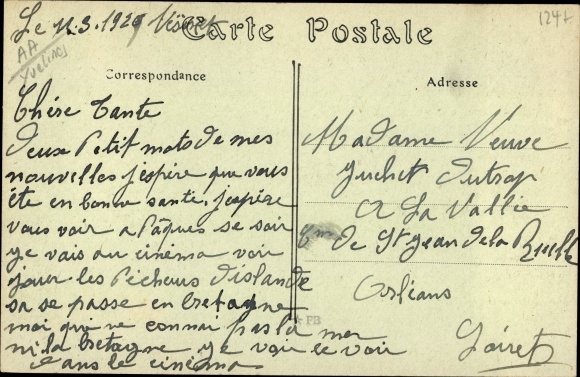 Le 11.3.1929 Vésinet
Carte Postale
124+
AA
Yvelines
Correspondance
Chère Tante
deux Petit mots de mes
nouvelles j'espère que vous
ête en bonne santé, j'espère
vous voir a Pâques se soir
je vais au cinéma voir
jouer les Pêcheurs d'islande
sa se passe en bretagne
moi qui ne connai pas la mer
ni la bretagne je vais le voir
dans le cinéma
PB
Adresse
Madame Veuve
Juchet Dutrop
A La Vallée
de St Jean de la Ruelle
Orléans
Loiret